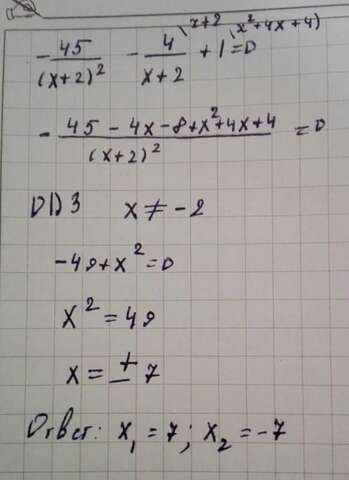 -45/(x+2)² - 4\x+2/(x+2) + 1\x²+4x+4) = 0
-(45 - 4x - 8 + x² + 4x + 4)/(x+2)² = 0
ОДЗ x ≠ -2
-49 + x² = 0
x² = 49
x = ± 7
Ответ: x₁ = 7; x₂ = -7